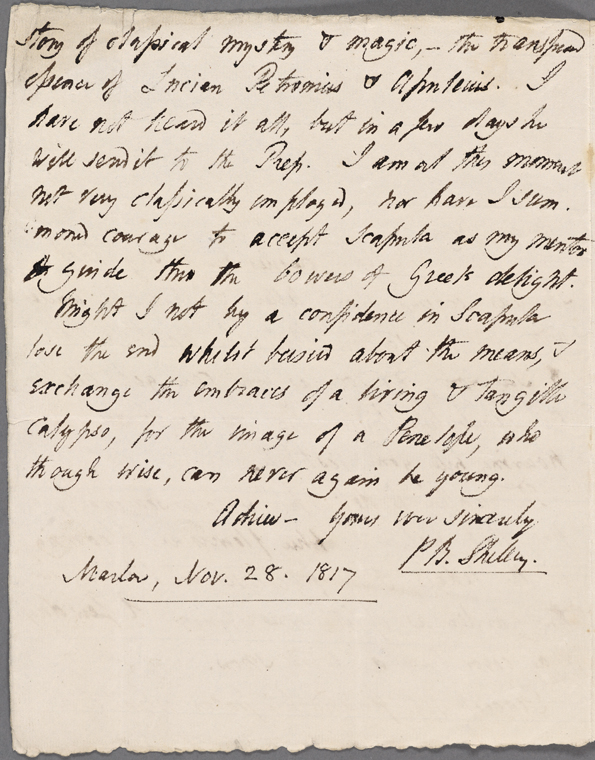 story of classical mystery & magic,— the transfused
essence of Lucian Petronius & Apuleius. I
have not heard it all, but in a few days he
will send it to the Press. I am at this moment
not very classically employed, nor have I sum-
moned courage to accept Scapula as my mentor
& guide thro the bowers of Greek delight.
Might I not by a confidence in Scapula
lose the end whilst busied about the means, &
exchange the embraces of a living & tangible
Calypso, for the image of a Penelope, who
though wise, can never again be young.
Adieu— Yours ever sincerely
PB. Shelley.
Marlow, Nov. 28. 1817